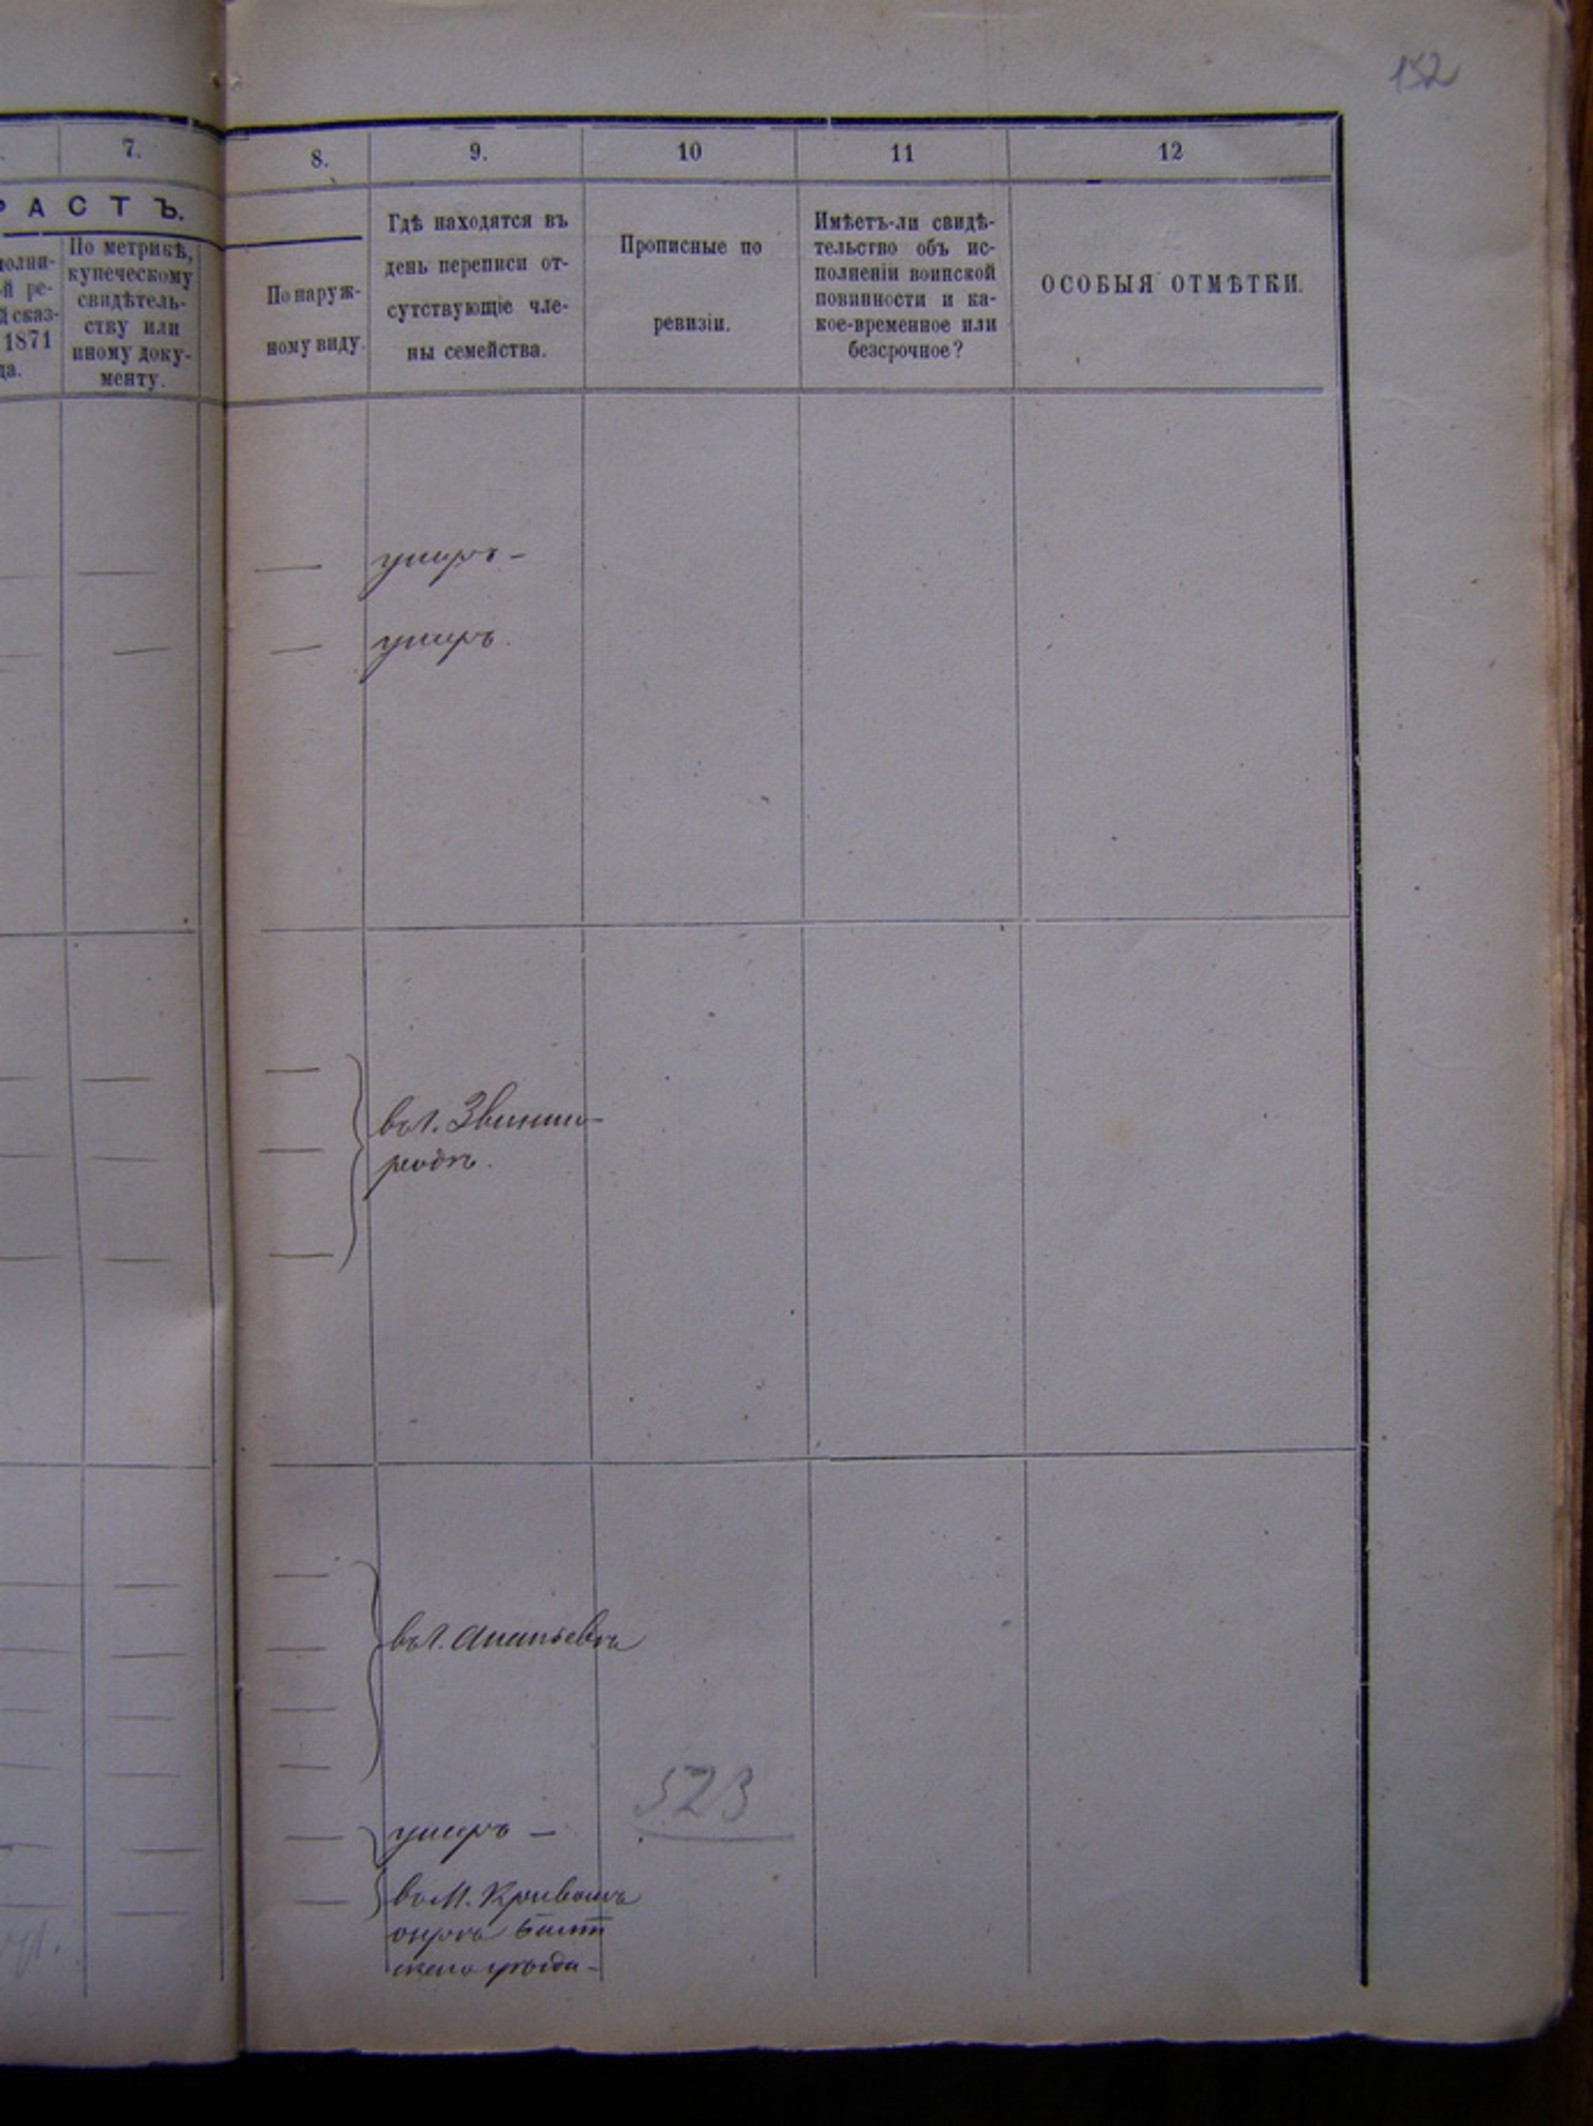 152
7.
8.
9.
10
11
12
РАСТЪ.
По метрикѣ,
купеческому
свидѣтель-
ству или
иному доку-
менту.
полни-
й ре-
й сказ-
1871
да.
По наруж-
ному виду.
Гдѣ находятся въ
день переписи от-
сутствующіе чле-
ны семейства.
Прописные по
ревизіи.
Имѣетъ-ли свидѣ-
тельство объ ис-
полненіи воинской
повинности и ка-
кое-временное или
безсрочное?
ОСОБЫЯ ОТМѢТКИ.
умеръ -
умеръ.
въ г. Звенио-
родкѣ.
въ г. Ананьевѣ
523
умеръ -
въ м. Кривомъ
озерѣ Балт
скаго уѣзда -